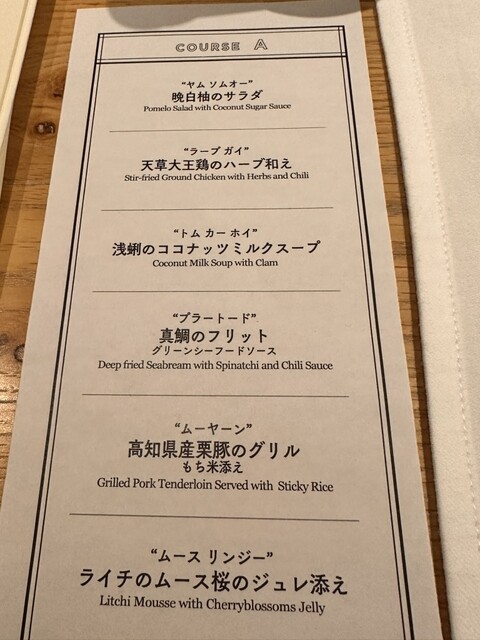 COURSE A
“ヤム ソムオー”
晩白柚のサラダ
Pomelo Salad with Coconut Sugar Sauce
“ラープ ガイ”
天草大王鶏のハーブ和え
Stir-fried Ground Chicken with Herbs and Chili
“トム カー ホイ”
浅蜊のココナッツミルクスープ
Coconut Milk Soup with Clam
“プラートード”
真鯛のフリット
グリーンシーフードソース
Deep fried Seabream with Spinatchi and Chili Sauce
“ムーヤーン”
高知県産栗豚のグリル
もち米添え
Grilled Pork Tenderloin Served with Sticky Rice
“ムース リンジー”
ライチのムース桜のジュレ添え
Litchi Mousse with Cherryblossoms Jelly